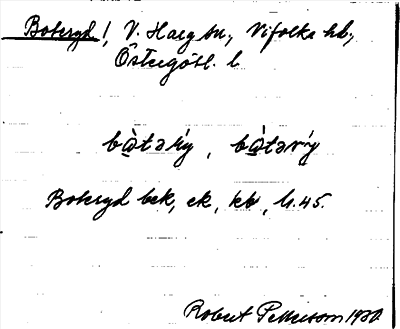 Boteryd!, V. Harg sn, Vifolka hd,
Östergötl. l
bòtərý, bòtərý
Boteryd bek, ek, kb, h.45.
Robert Pettersson 1930